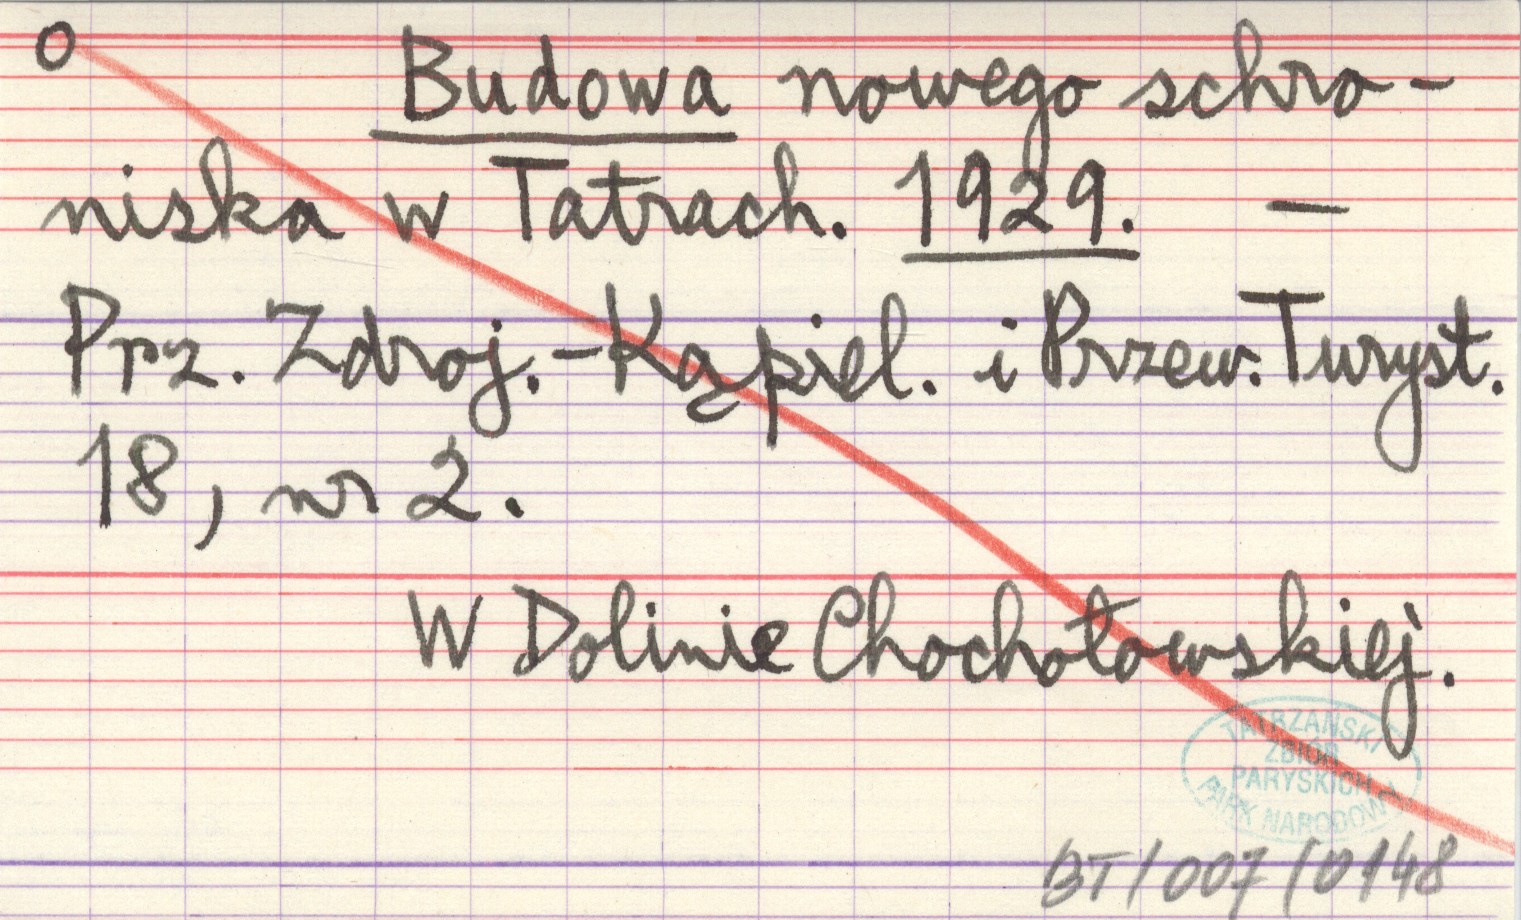 O Budowa nowego schro-
niska w Tatrach. 1929. —
Prz. Zdroj.-Kąpiel. i Przew. Turyst.
18, nr 2.
W Dolinie Chochołowskiej.
TATRZAŃSKI
ZBIÓR
PARYSKICH
PARK NARODOWY
BT/007/0148